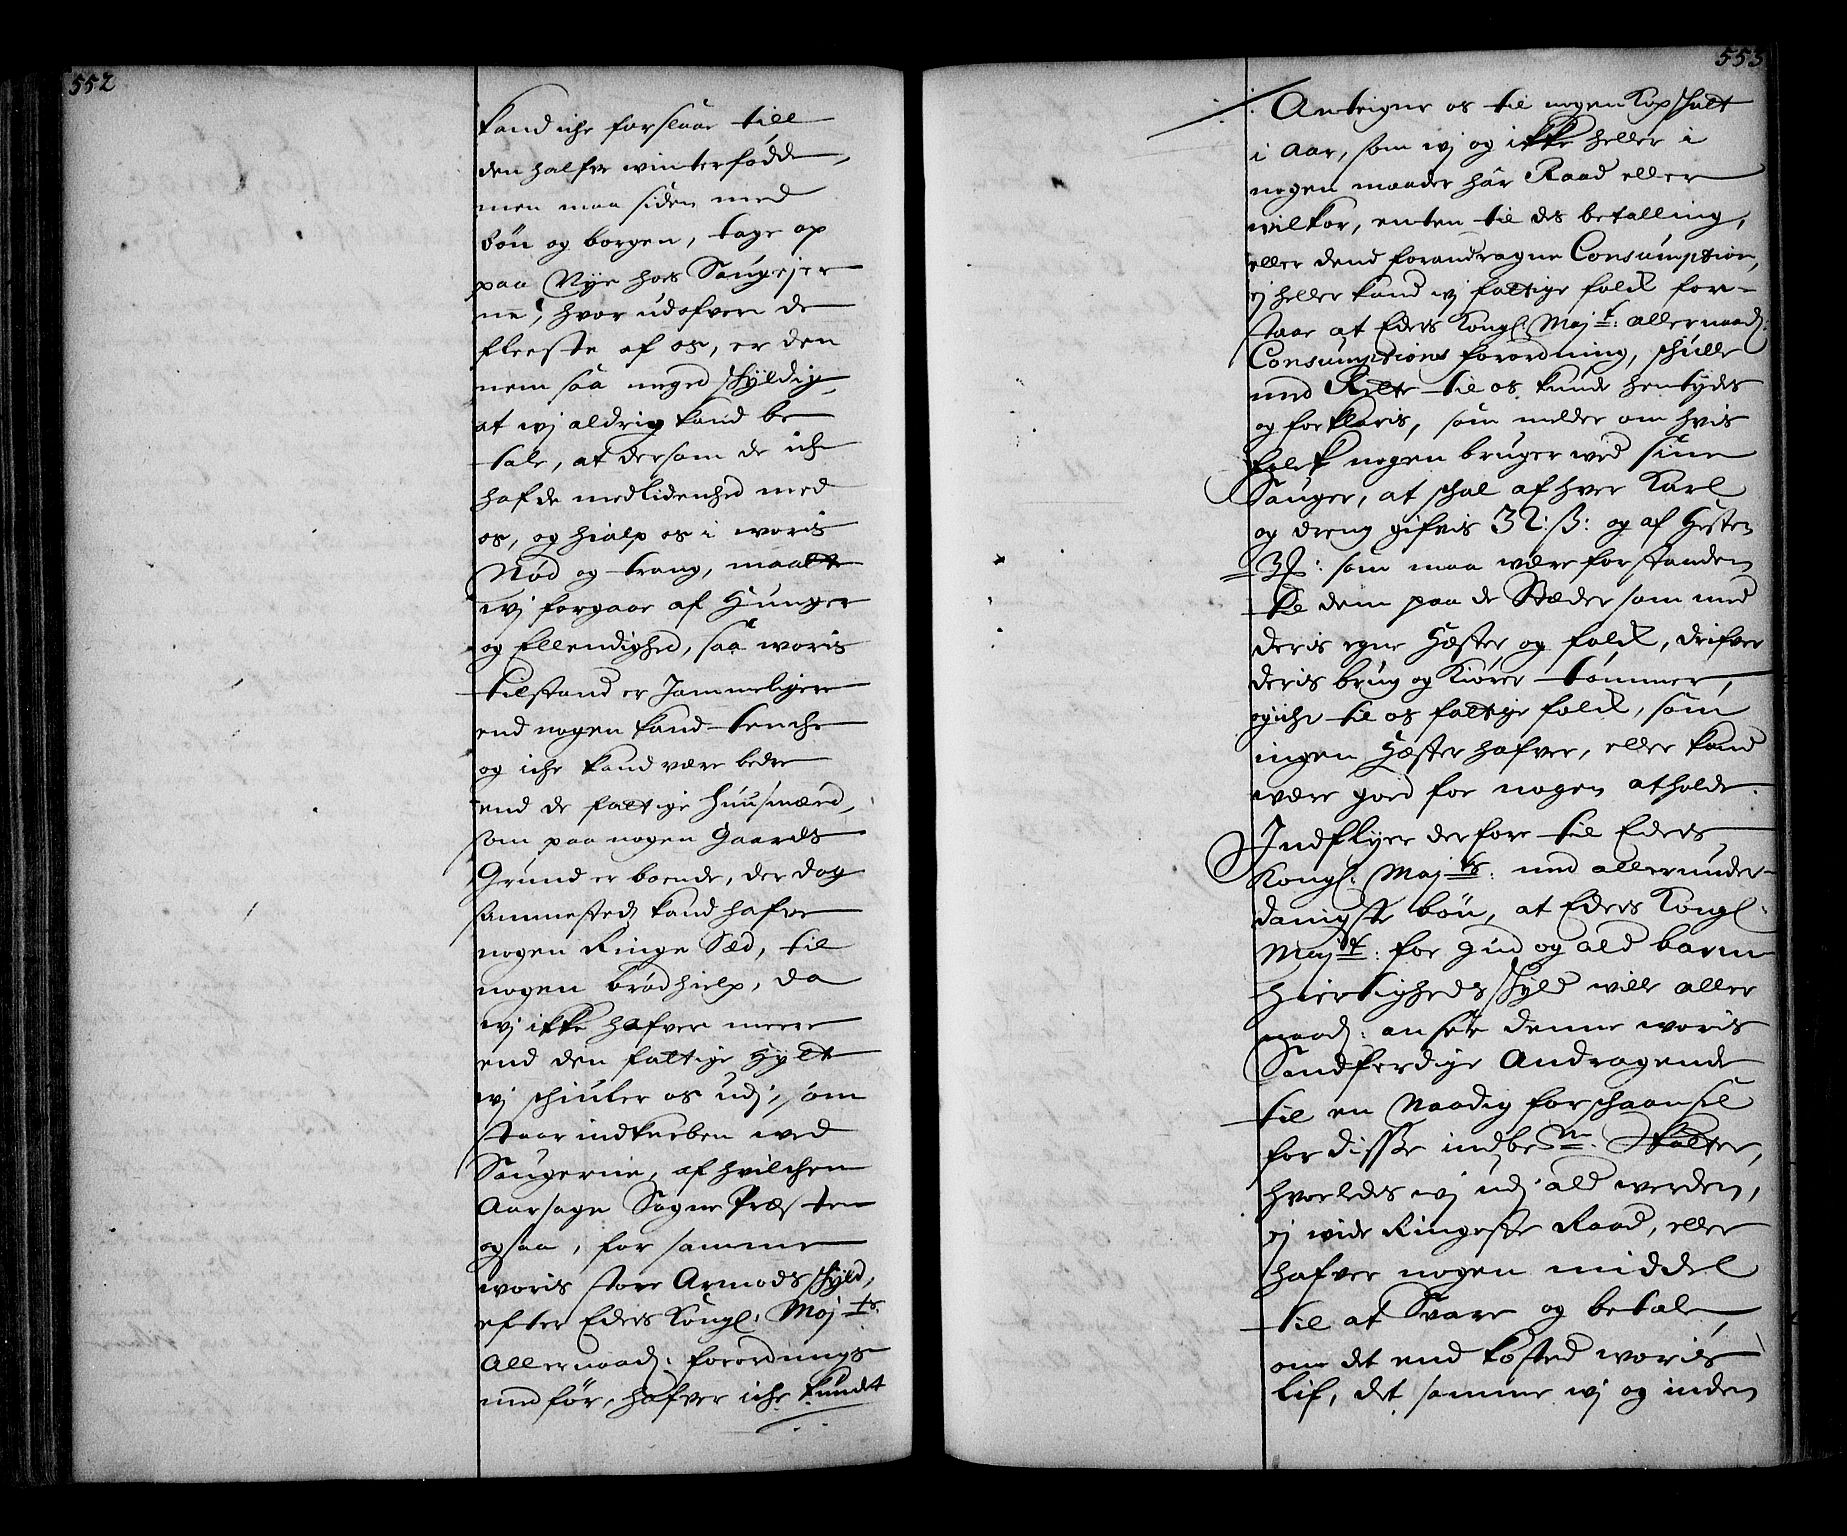 552
kand iche forslaae till
den halfve winterfødde,
men maa siden med
bøn og borgen, tage op
paa Nye hos Saugejer
ne, hvor udofver de
fleeste af os, er den
nem saa meged skyldig,
at wj aldrig kand be
tale, at dersom de iche
hafde medlidenhed med
os, og hialp os i woris
Nød og trang, maatte
wj forgaae af Hunger
og Ellendighed, saa woris
tilstand er Jammeligere
end nogen kand tenche
og iche kand være bedre
end de fattige Huusmænd,
som paa nogen Gaards
Grund er boende, der dog
sammested kand hafve
nogen Ringe Sæd, til
nogen brødhielp, da
wj ikke hafver meere
end den fattige Hytte
wj schiuler os udj, som
staar indkneben wed
Saugerne, af hvilchen
Aarsage Sogne Præsten
ogsaa, for samme
woris store Armods skyld,
efter Eders Kongl: Maj:ts
Allernaad: forordnings
medfør, hafver iche kundet
553
Anteigne os til nogen Kopskatt
i Aar, som wj og ikke heller i
nogen maader har Raad eller
wilkor, enten til des betalling,
eller dend forandragne Consumption,
ej heller kand wj fattige folck for-
staae at Eders Kongl: Maj:t: allernaad:
Consumptions forordning, schulle
med Rette til os kunde hentydes
og forklaris, som melder om hvis
folck nogen bruger wed sine
Sauger, at schal af hver Karl
og dreng gifvis 32: ß: og af Hesten
3 : som maa være forstanden
til dem paa de Stæder som med
deris egne Hæster og folck, drifver
deris brug og Kiører tømmer,
og iche til os fattige folck, som
ingen Hæster hafver, eller kand
være goed for nogen at holde.
Indflyer derfore til Eders
Kongl: Maj:ts: med allerunder-
danigste bøn, at Eders Kongl:
Maj:t: for Gud og ald barm
hiertigheds skyld wille aller
naad: ansee denne woris
Sandferdige Andragende
til en Naadig forschaansel
for disse indbem:te Skatter,
hvorledes wj udj ald werden,
ej wide Ringeste Raad, eller
hafver nogen middel
til at Svare og betale,
om det end kosted woris
lif, det samme wj og inden